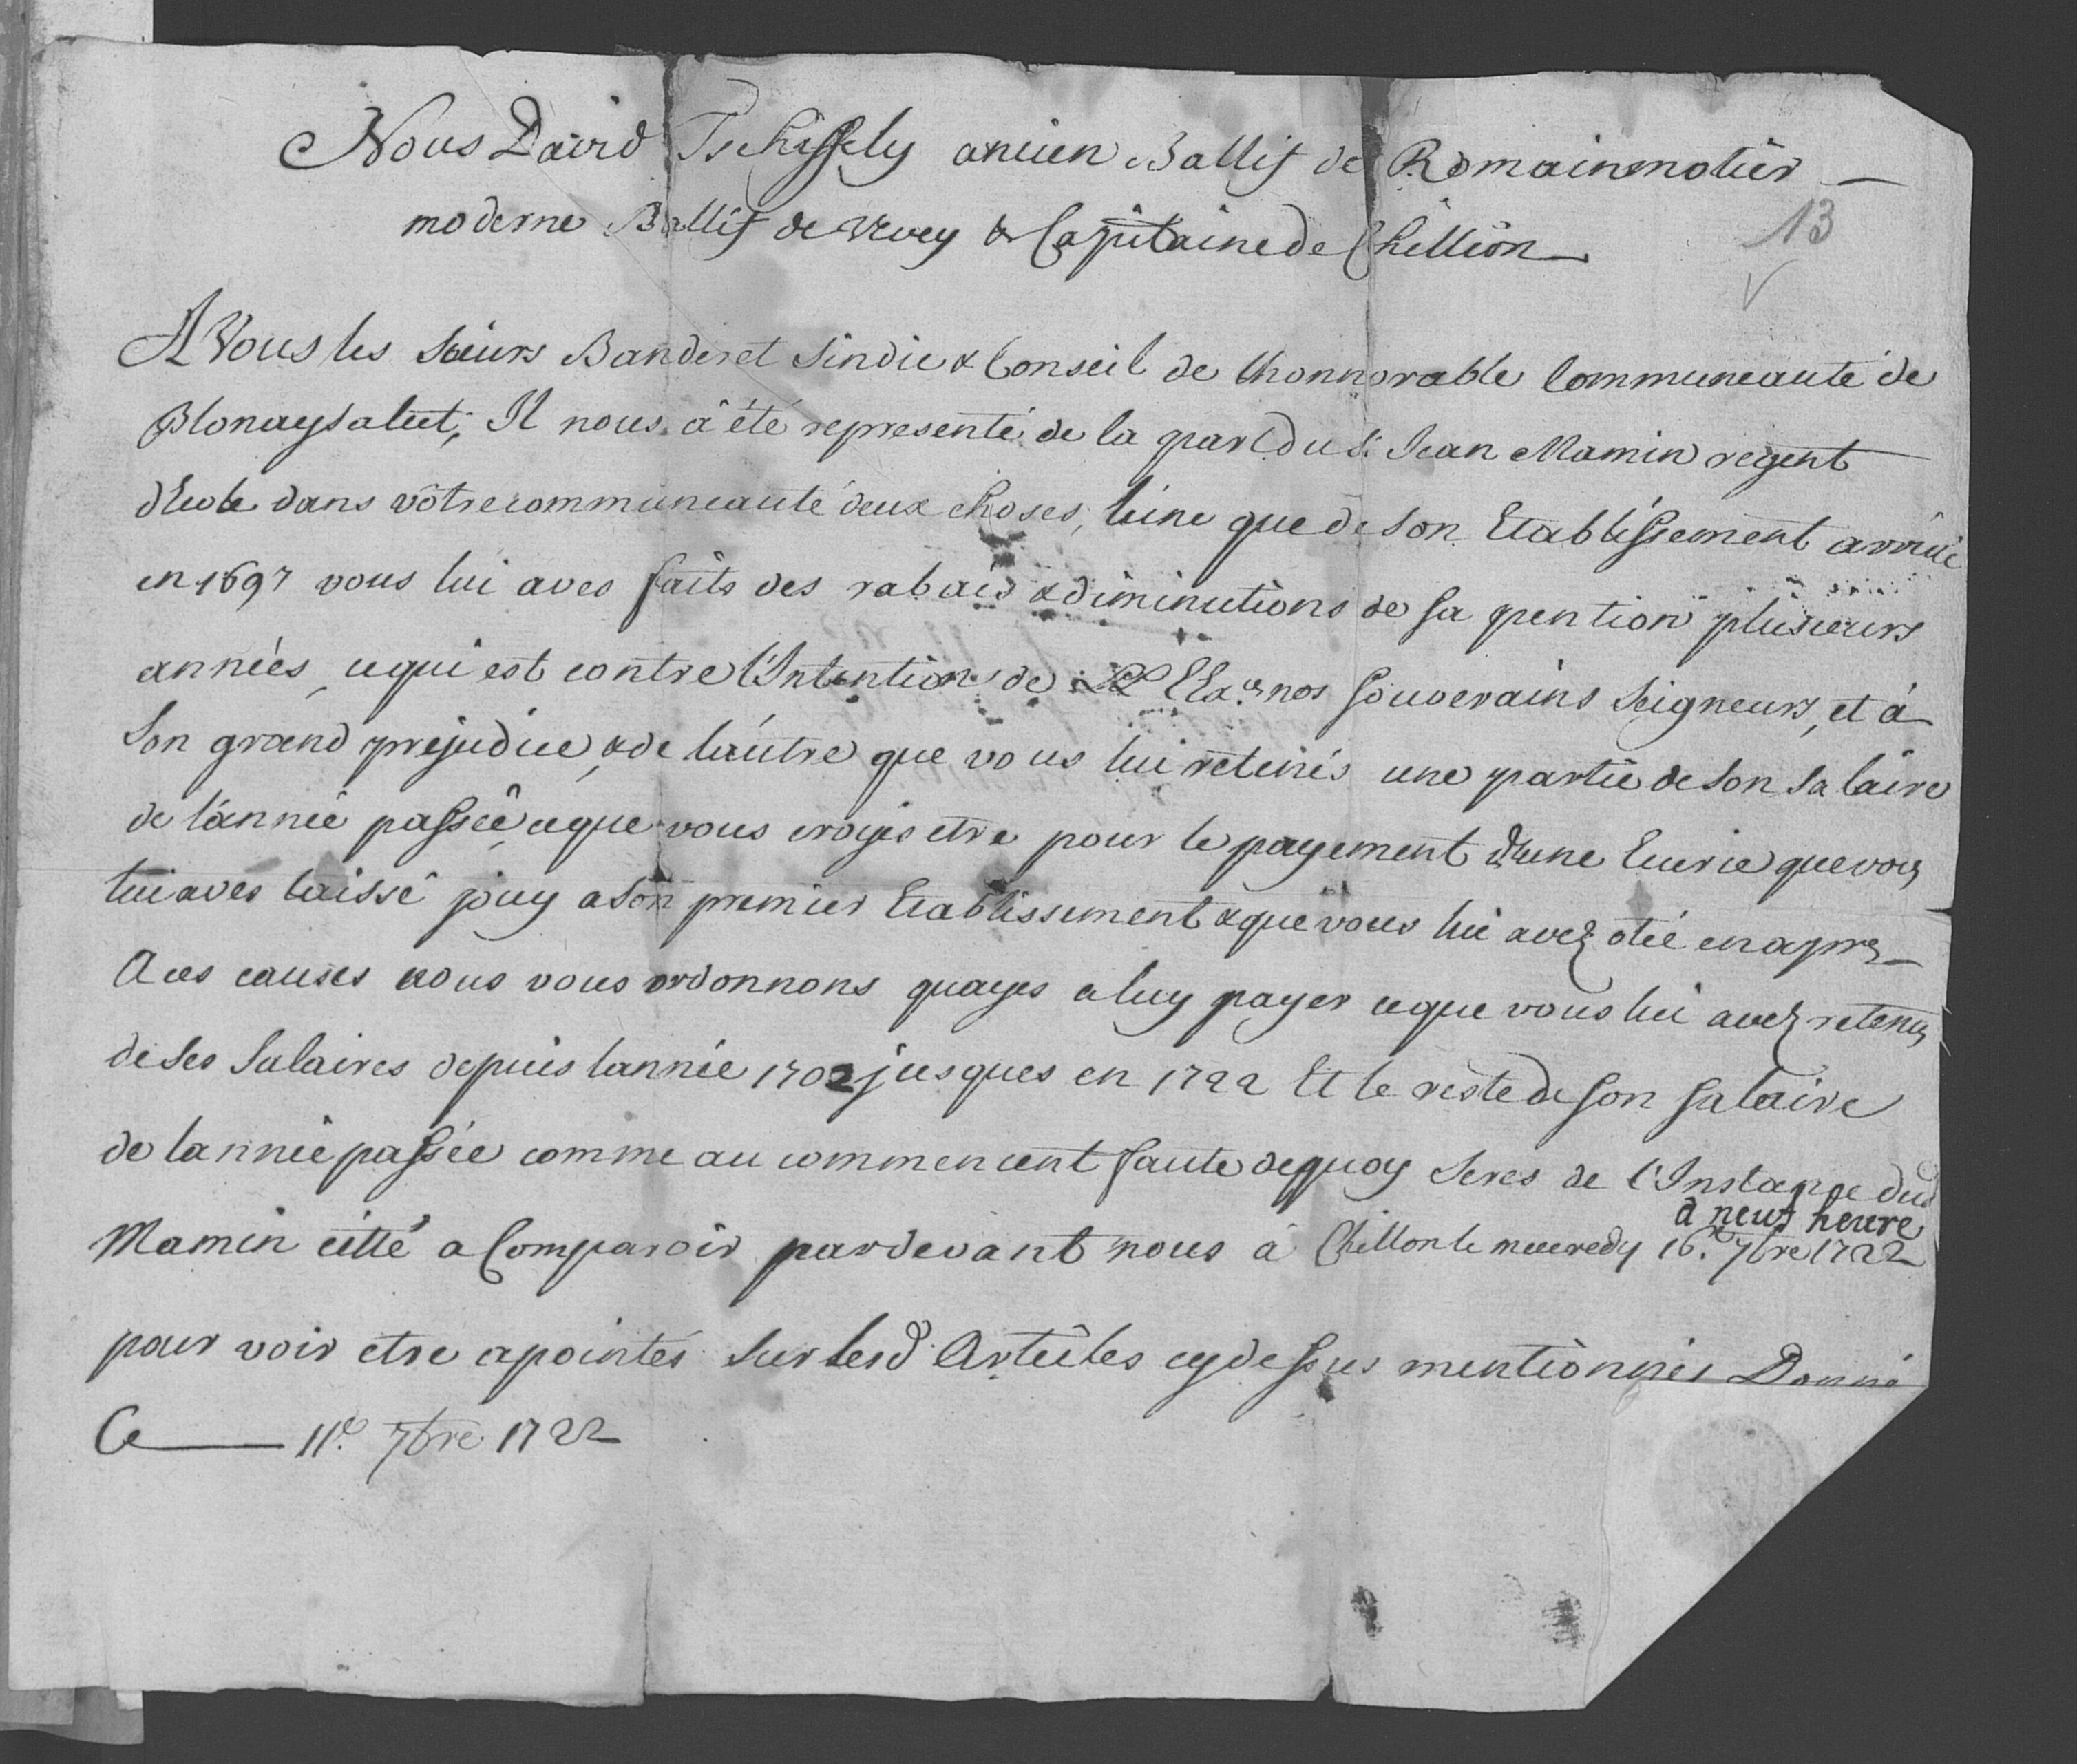 Nous David Tschiffely ancien Ballif de Romainmotier
moderne Ballif de Vevey & Capitaine de Chillion
13
A Vous les Sieurs Banderet Sindic & Conseil de lhonnorable Communeauté de
Blonay salut; Il nous â été representé de la part du Sr. Jean Mamin regent
dEcole dans vôtre communeauté deux choses, lûne que de son Etablissement arrivé
en 1697 vous lui aves faits des rabais & diminutions de sa pention plusieurs
années, ce qui est contre l'Intention de LL EEx.ces nos souverains Seigneurs, et à
Son grand prejudice, & de l'autre que vous lui retenés une partie de son Salaire
de l'année passée, ce que vous croyés etre pour le payement d'une Curie que vous
lui aves laissé jouy a son premier Etablissement & que vous lui avez oté en apres
A ces causes nous vous ordonnons quayes a luy payer ce que vous lui avez retenu
de ses Salaires depuis lannée 1702 jusques en 1722 Et le reste de son salaire
de lannée passée comme au commencent faute dequoy Seres de l'Instance dud
à neuf heure
Mamin citté a Comparoir pardevant nous à Chillon le mecredy 16.e 7bre 1722
pour voir etre apointés sur lesd Articles cy dessus mentionnés Donné
Ce 11e. 7bre 1722